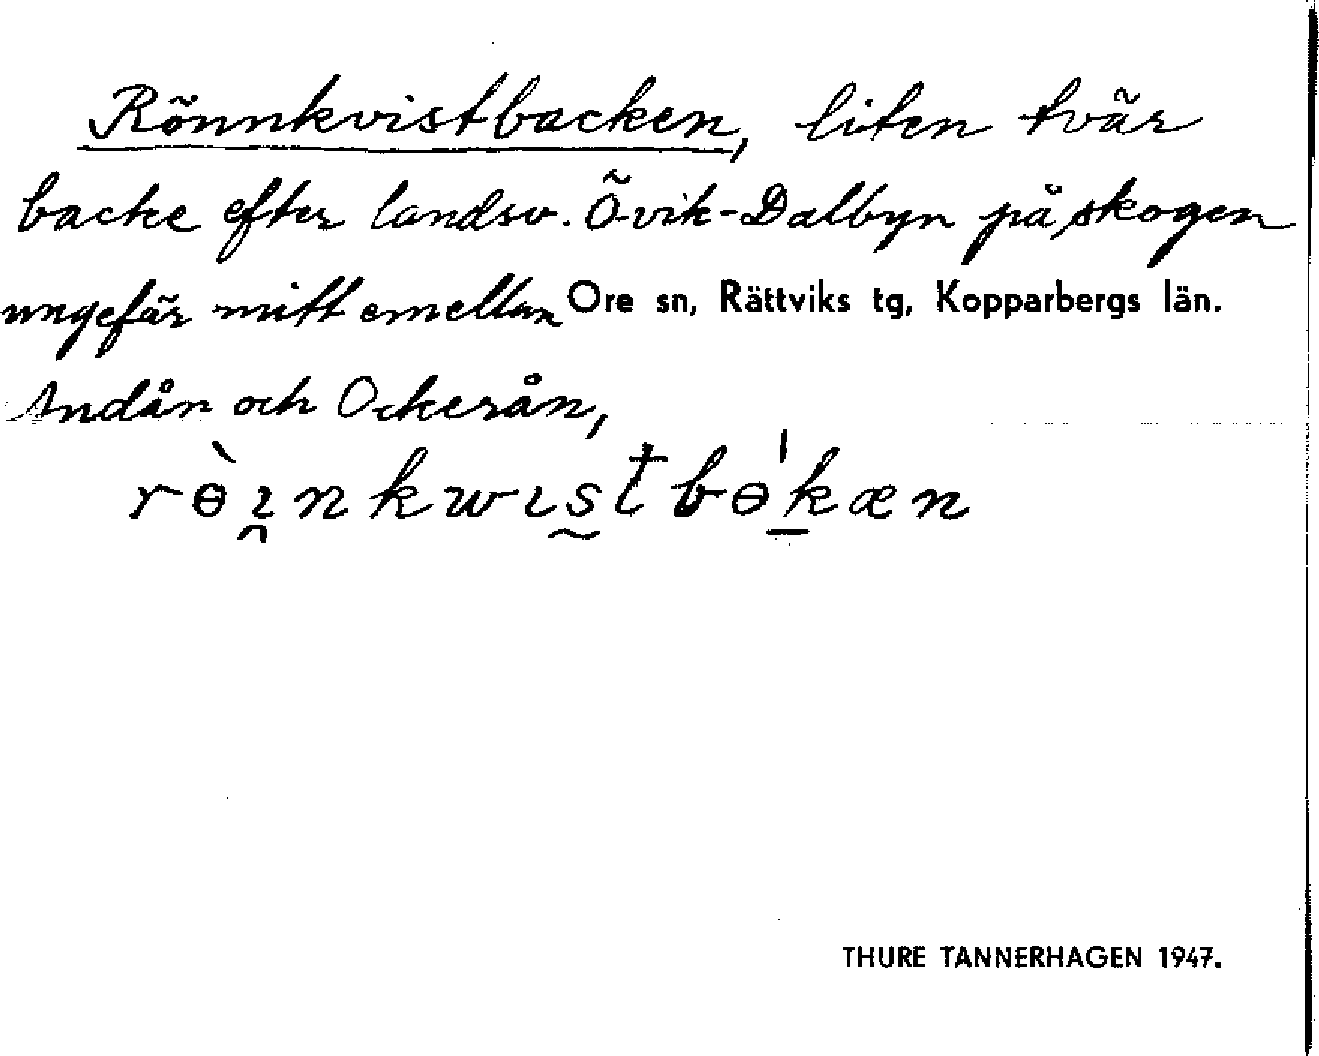 Rönnkvistbacken, liten tvär
backe efter landsv. Övik-Dalbyn på skogen
ungefär mitt emellan Ore sn, Rättviks tg, Kopparbergs län.
Andån och Ockerån,
rɵ̀ı̯nkwıs̰tbɵ́k̠æn
THURE TANNERHAGEN 1947.